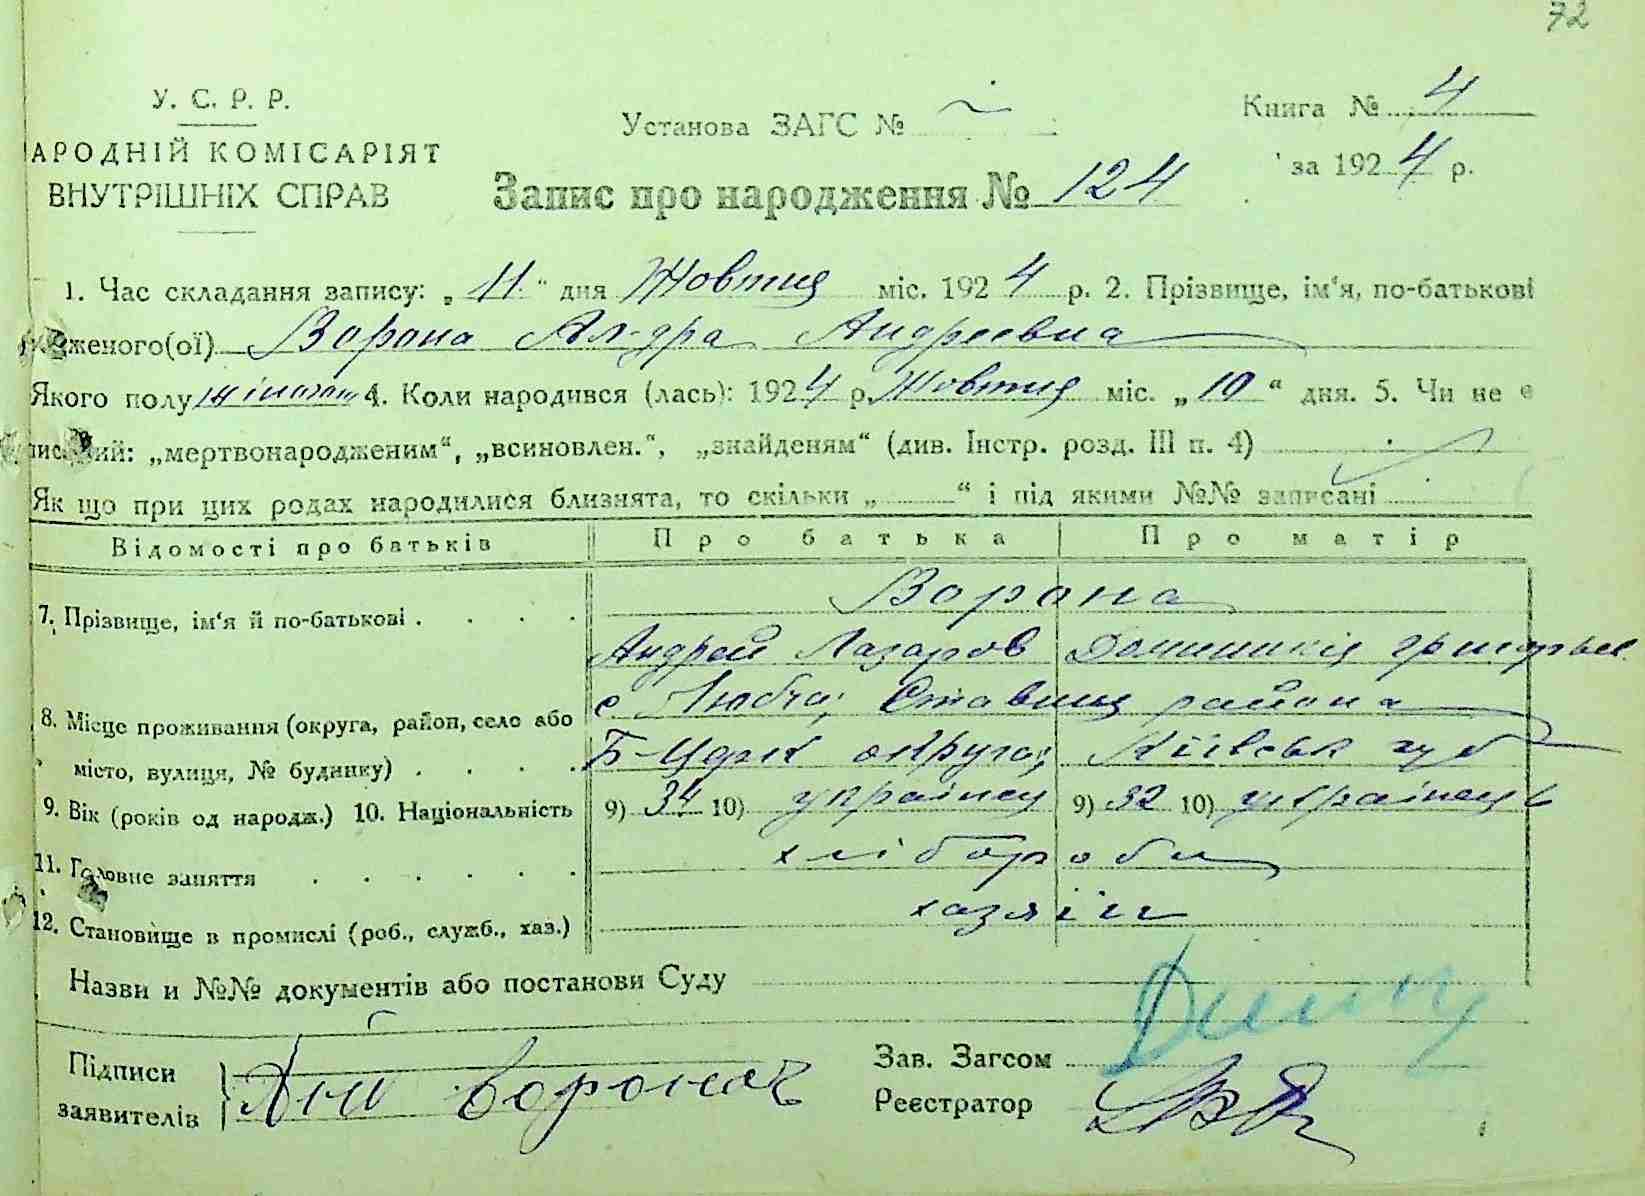 72
У. С. Р. Р.
АРОДНІЙ КОМІСАРІЯТ
ВНУТРІШНІХ СПРАВ
Установа ЗАГС №
Книга № 4
за 1924 р.
Запис про народження № 124
1. Час складання запису: „11" дня Жовтня міс. 1924 р. 2. Прізвище, ім'я, по-батькові
дженого(ої) Ворона Ал-дра Андреевна
Якого полу жіночого 4. Коли народився (лась): 1924 р. Жовтня міс. „10" дня. 5. Чи не є
ний: „мертвонародженим", „всиновлен.", „знайденям" (див. Інстр. розд. III п. 4)
Як що при цих родах народилися близнята, то скільки „ " і під якими №№ записані
Відомості про батьків Про батька Про матір
7. Прізвище, ім'я й по-батькові . . . . Ворона
Андрей Лазаров Доминикія Григорьев.
8. Місце проживання (округа, район, село або місто, вулиця, № будинку) . . . . с Любча, Ставищ района
Б-Церк округа, Київськ губ
9. Вік (років од народж.) 10. Національність 9) 34 10) украінец 9) 32 10) украінець
11. Головне заняття . . . . . . хлібороби
12. Становище в промислі (роб., служб., хаз.) хазяін
Назви и №№ документів або постанови Суду
Підписи
заявителів
Ворона
Зав. Загсом
Реєстратор